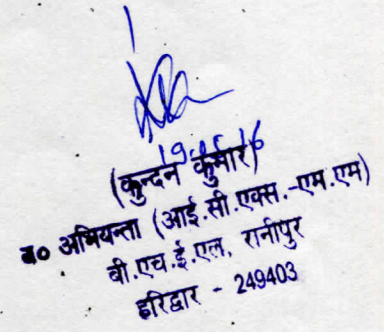 (कुन्दन कुमार)
ब० अभियन्ता (आई.सी.एक्स.-एम.एम)
बी.एच.ई.एल, रानीपुर
हरिद्वार - 249403